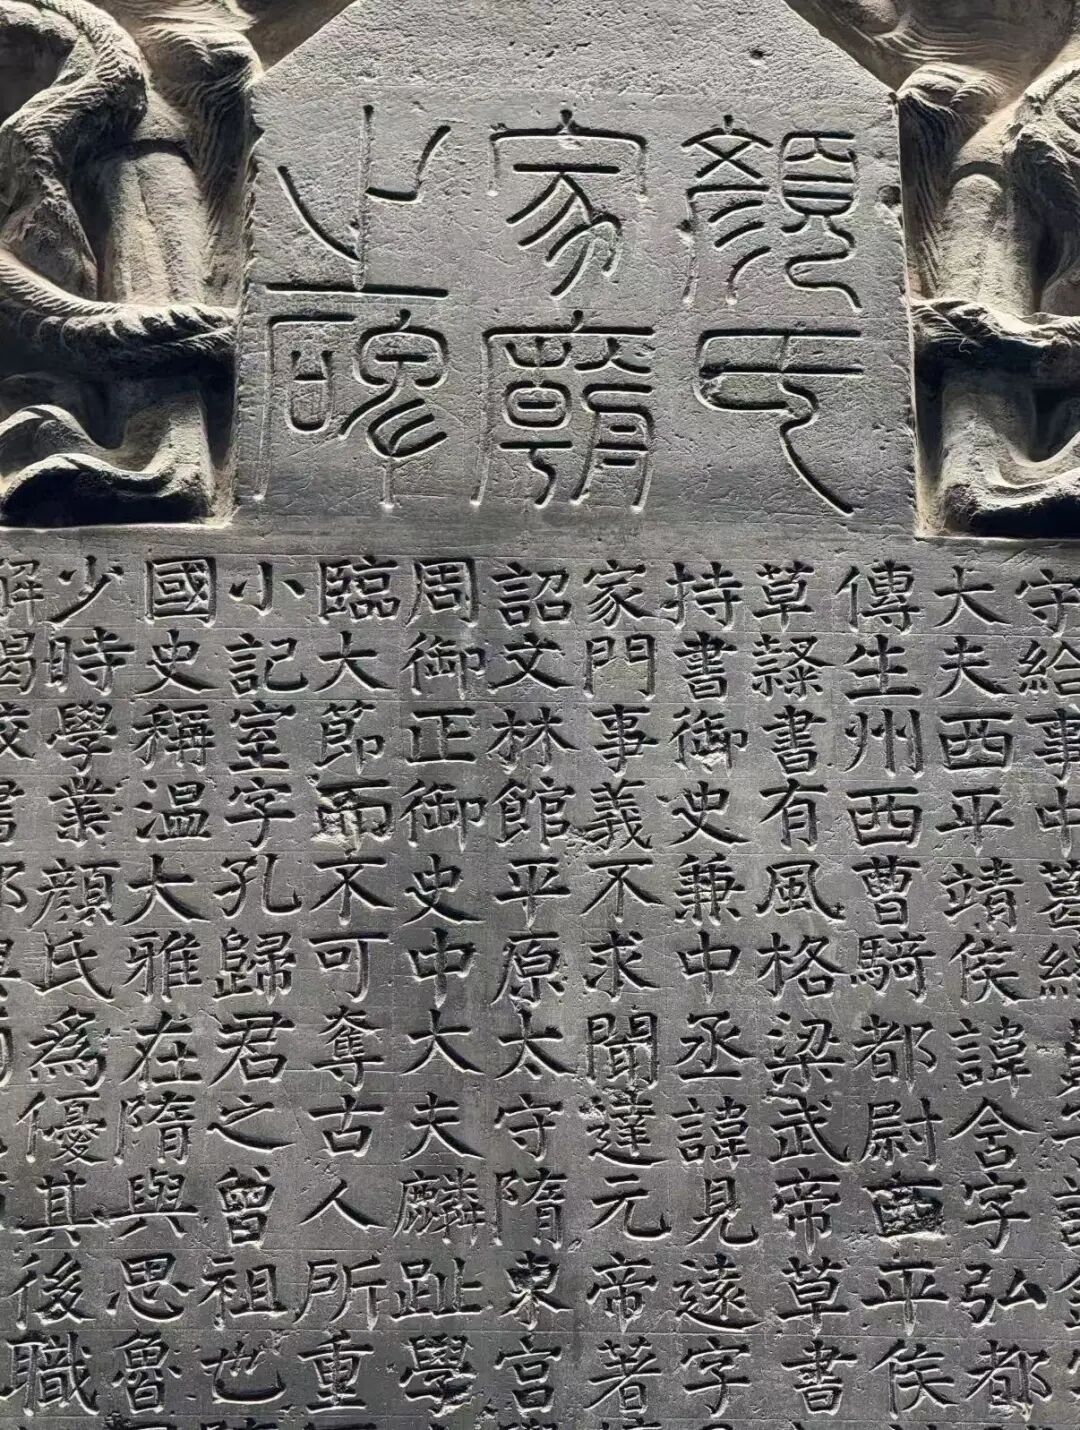 顏氏
家廟
之碑
守給事中葛繹
大夫西平靖侯諱含字弘都
傳生州西曹騎都尉西平侯
草隸書有風格梁武帝草書
持書御史兼中丞諱見遠字
家門事義不求聞達元帝著
詔文林館平原太守隋東宮
周御正御史中大夫麟趾學
臨大節而不可奪古人所重
小記室字孔歸君之曾祖也
國史稱温大雅在隋與思魯
少時學業顏氏爲優其後職
解褐校書郎